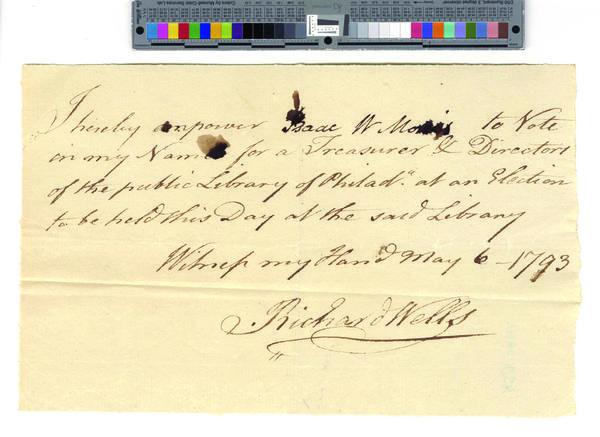 I hereby empower Isaac W Morris to Vote
in my Name for a Treasurer & Directors
of the public Library of Philada. at an Election
to be held this Day at the said Library
Witness my Hand May 6 - 1793
Richard Wells